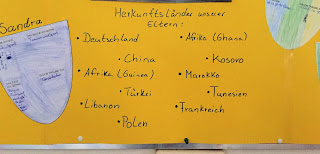 Sandra
Herkunftsländer unserer
Eltern:
• Deutschland
• Afrika (Ghana)
• China
• Kosovo
• Afrika (Guinea)
• Marokko
• Türkei
• Tunesien
• Libanon
• Frankreich
• Polen